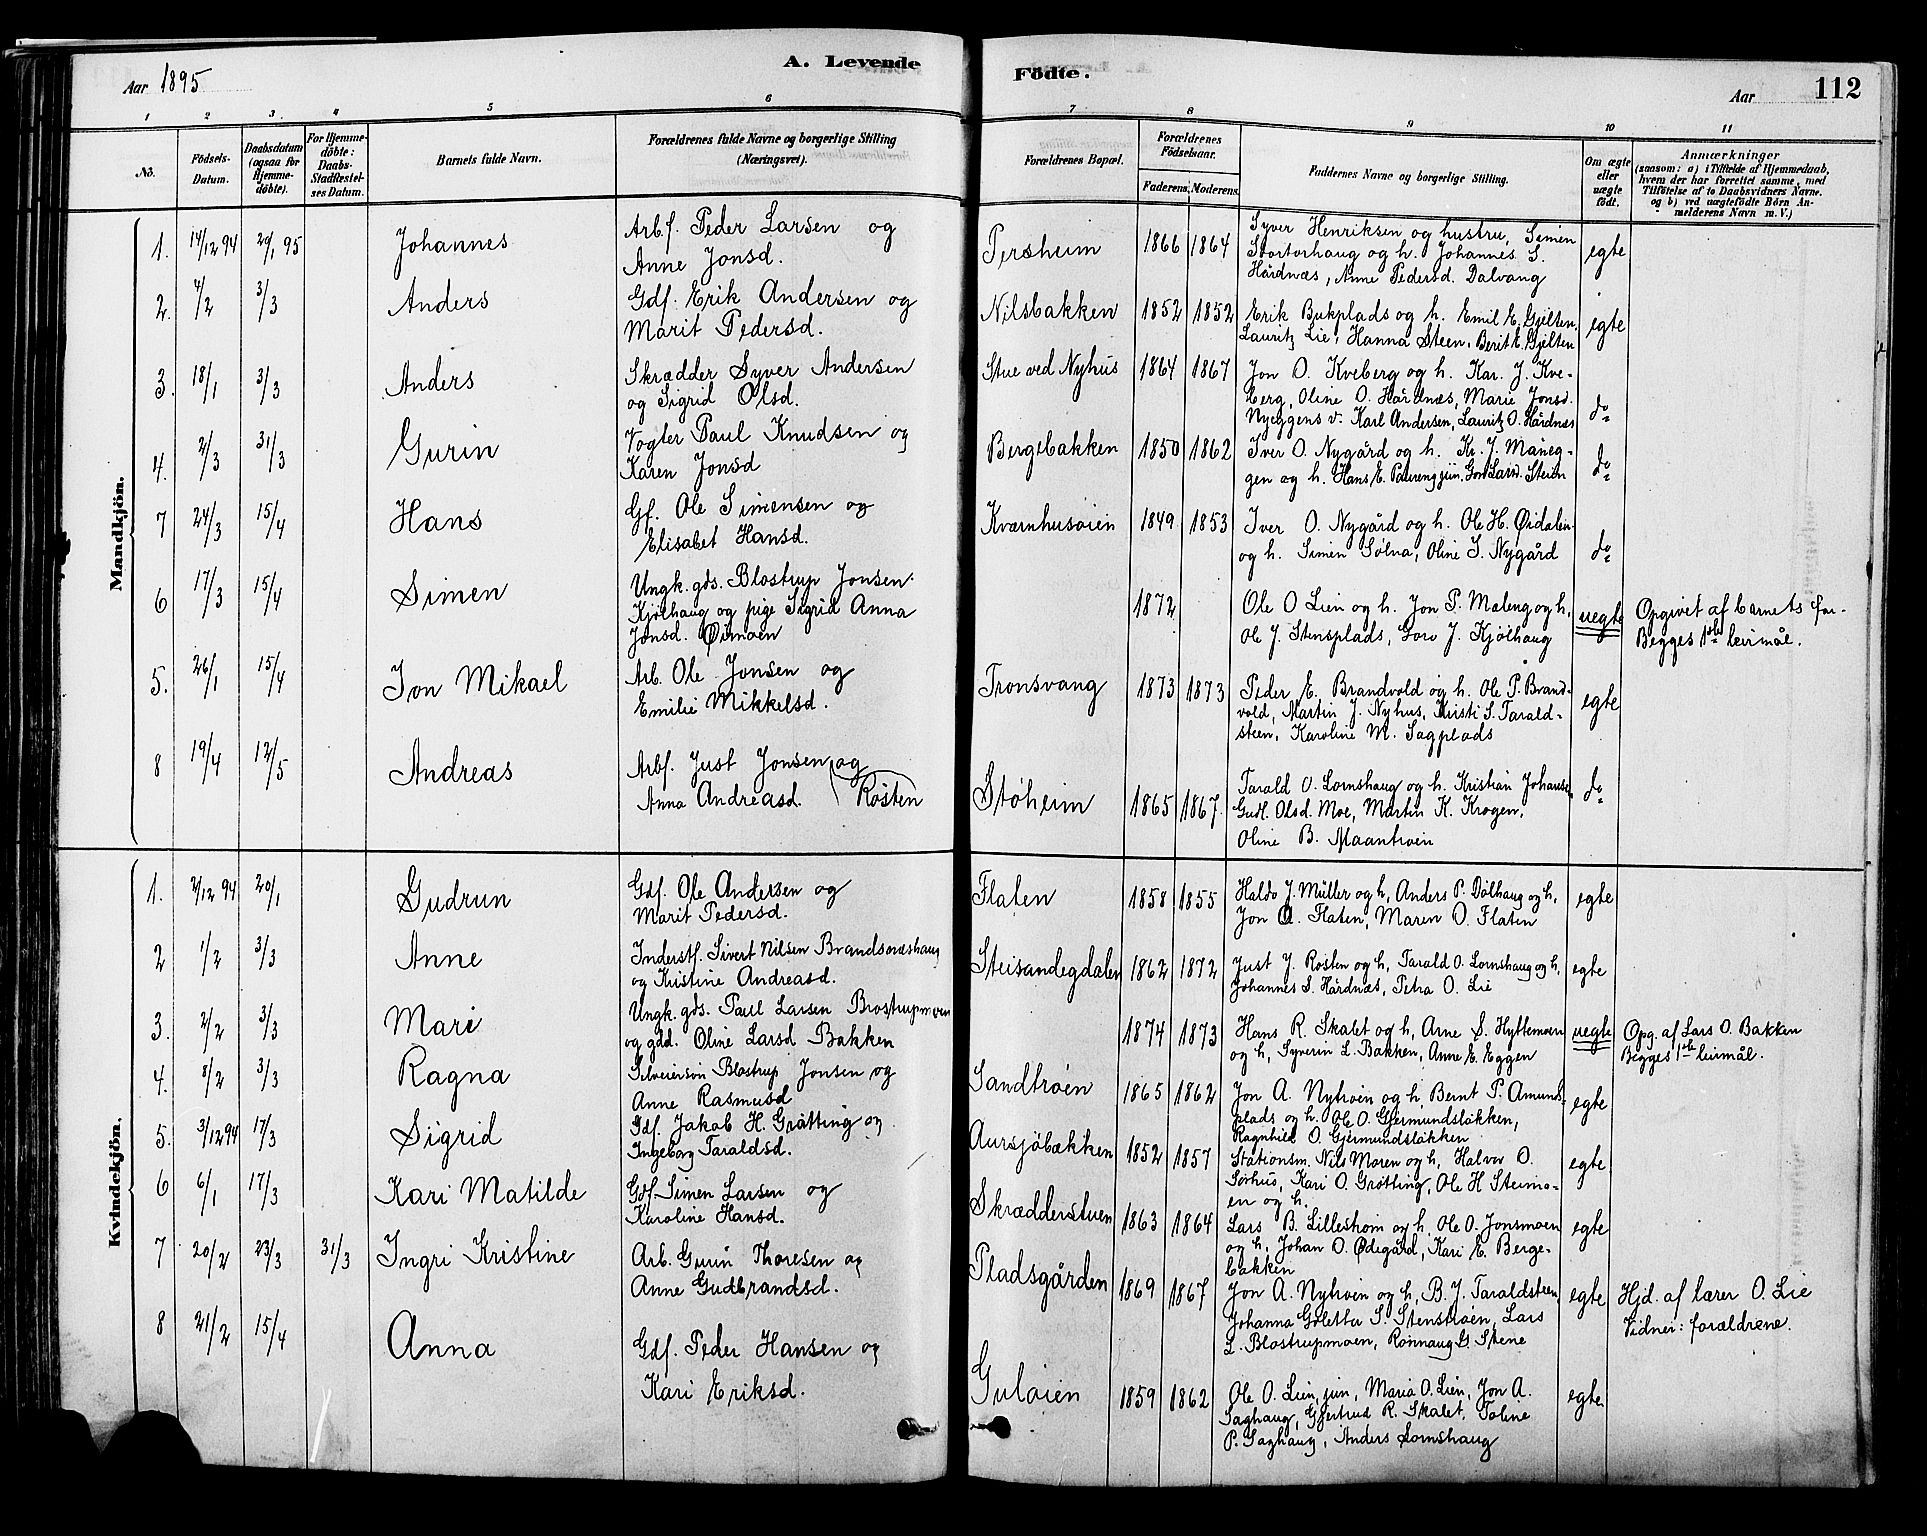 A. Levende
Födte.
112
Aar 1895
Aar
1 2 3. 4 5 6 7 8 9 10 11
No.
Födsels-Datum.
Daabsdatum (ogsaa for Hjemme-döbte).
For Hjemme-döbte: Daabs-Stadfæstel-ses Datum.
Barnets fulde Navn.
Forældrenes fulde Navne og borgerlige Stilling (Næringsvei).
Forældrenes Bopæl.
Forældrenes Födselsaar.
Faderens. Moderens.
Faddernes Navne og borgerlige Stilling.
Om ægte eller uægte födt.
Anmærkninger
(saasom: a) i Tilfælde af Hjemmedaab,
hvem der har forrettet samme, med
Tilföielse af to Daabsvidners Navne.
og b) ved uægtefödte Börn An-
melderens Navn m. V.)
Mandkjön.
1. 14/12 94 20/1 95 Johannes
Arbf. Peder Larsen og
Anne Jonsd.
Persheim 1866 1864
Syver Henriksen og hustru, Simen
Stortorhaug og h. Johannes S.
Hårdnæs, Anne Pedersd. Dalvang
egte
2. 4/2 3/3 Anders
Gdf. Erik Andersen og
Marit Pedersd.
Nilsbakken 1852 1852
Erik Bukplads og h. Emil E. Gjelten,
Lauritz Lie, Hanna Steen, Berit E. Gjelten
egte
3. 18/1 3/3 Anders
Skrædder Syver Andersen
og Sigrid Olsd.
Stue ved Nyhus 1864 1867
Jon O. Kveberg og h. Kar. J. Kve-
berg, Oline O. Hårdnæs, Marie Jonsd.
Nyeggens v. Karl Andersen, Lauritz O. Hårdnæs
do
4. 2/3 31/3 Gurin
Vogter Paul Knudsen og
Karen Jonsd
Bergebakken 1850 1862
Iver O. Nygård og h. Kr. J. Måneg-
gen og h. Hans E. jun, Larsd. Steien
do
7 24/3 15/4 Hans
Gf. Ole Simensen og
Elisabet Hansd.
Kværnhusøien 1849 1853
Iver O. Nygård og h. Ole H. Øidalen
og h. Simen Sølna, Oline I. Nygård
do
6 17/3 15/4 Simen
Ungk. gds. Blostrup Jonsen
Kjølhaug og pige Sigrid Anna
Jonsd. Øimoen
1872
Ole O Lien og h. Jon P. Maleng og h,
Ole J. Stensplads, Goro J. Kjølhaug
uegte
Opgivet af barnets far.
Begges 1ste leirmål.
5. 26/1 15/4 Jon Mikael
Arb. Ole Jonsen og
Emilie Mikkelsd.
Tronsvang 1873 1873
Peder E. Brandvold og h. Ole P. Brand-
vold, Martin J. Nyhus, Kristi S. Tarald-
steen, Karoline M. Sagplads
egte
8 19/4 12/5 Andreas
Arbf. Just Jonsen og
Anna Andreasd. (Røsten
Støheim 1865 1867.
Tarald O. Lornshaug og h. Kristian Johansen
Gudl. Olsd. Moe, Martin K. Krogen,
Oline B. Maantrøen
do
Kvindekjön.
1. 2/12 94 20/1 Gudrun
Gdf. Ole Andersen og
Marit Pedersd.
Flaten 1858 1855
Haldo J. Müller og h, Anders P. Dølhaug og h,
Jon O. Flaten, Maren O. Flaten
egte
2 1/2 3/3 Anne
Inderstf. Sivert Nilsen Brandsnæshaug
og Kristine Andreasd.
Steisandegdalen 1862 1872
Just J. Røsten og h, Tarald O. Lornshaug og h,
Johannes S. Hårdnæs, Petra O. Lie
egte
3. 2/2 3/3 Mari
Ungk. gds. Paul Larsen Brostrupmoen
og gdd. Oline Larsd Bakken
1874 1873
Hans R. Skalet og h, Arne S. Hyttemoen
og h, Syverin L. Bakken, Anne E. Eggen
uegte
Opg. af Lars O. Bakken
Begges 1ste leirmål.
4. 8/2 3/3 Ragna
Selveiersøn Blostrup Jonsen og
Anne Rasmusd
Sandtrøen 1865 1862
Jon A. Nytrøen og h, Bernt P. Amunds-
plads og h. Ole O. Gjermundsløkken,
Ragnhild O. Gjermundsløkken
egte
5. 3/12 94 17/3 Sigrid
Gdf. Jakob H. Grøtting og
Ingeborg Taraldsd.
Aursjøbækken 1852 1857
Stationsm. Nils Moren og h, Halvor O.
Sørhus, Kari O. Grøtting, Ole H Steimo-
en og h.
egte
6 6/1 17/3 Kari Matilde
Gdf. Simen Larsen og
Karoline Hansd.
Skrædderstuen 1863 1864
Lars B. Lillestrøm og h, Ole O. Jonsmoen
og h, Johan O. Ødegård, Kari E. Berge-
bakken
egte
7 20/2 23/3 31/3 Ingri Kristine
Arb. Gurin Thoresen og
Anne Gudbrandsd.
Pladsgården 1869 1867
Jon A. Nytrøen og h, B. J. Taraldsteen,
Johanna Goletta S. Stenstrøen, Lars
L. Blostrupmoen, Rønnaug G. Stene
egte
Hjd. af lærer O. Lie
Vidner: forældrene.
8 21/2 15/4 Anna
Gdf. Peder Hansen og
Kari Eriksd.
Guløien 1859 1862
Ole O. Lien, jun, Maria O. Lien, Jon A.
Saghaug, Gjertrud R. Skalet, Toline
P. Saghaug, Anders Lornshaug
egte.